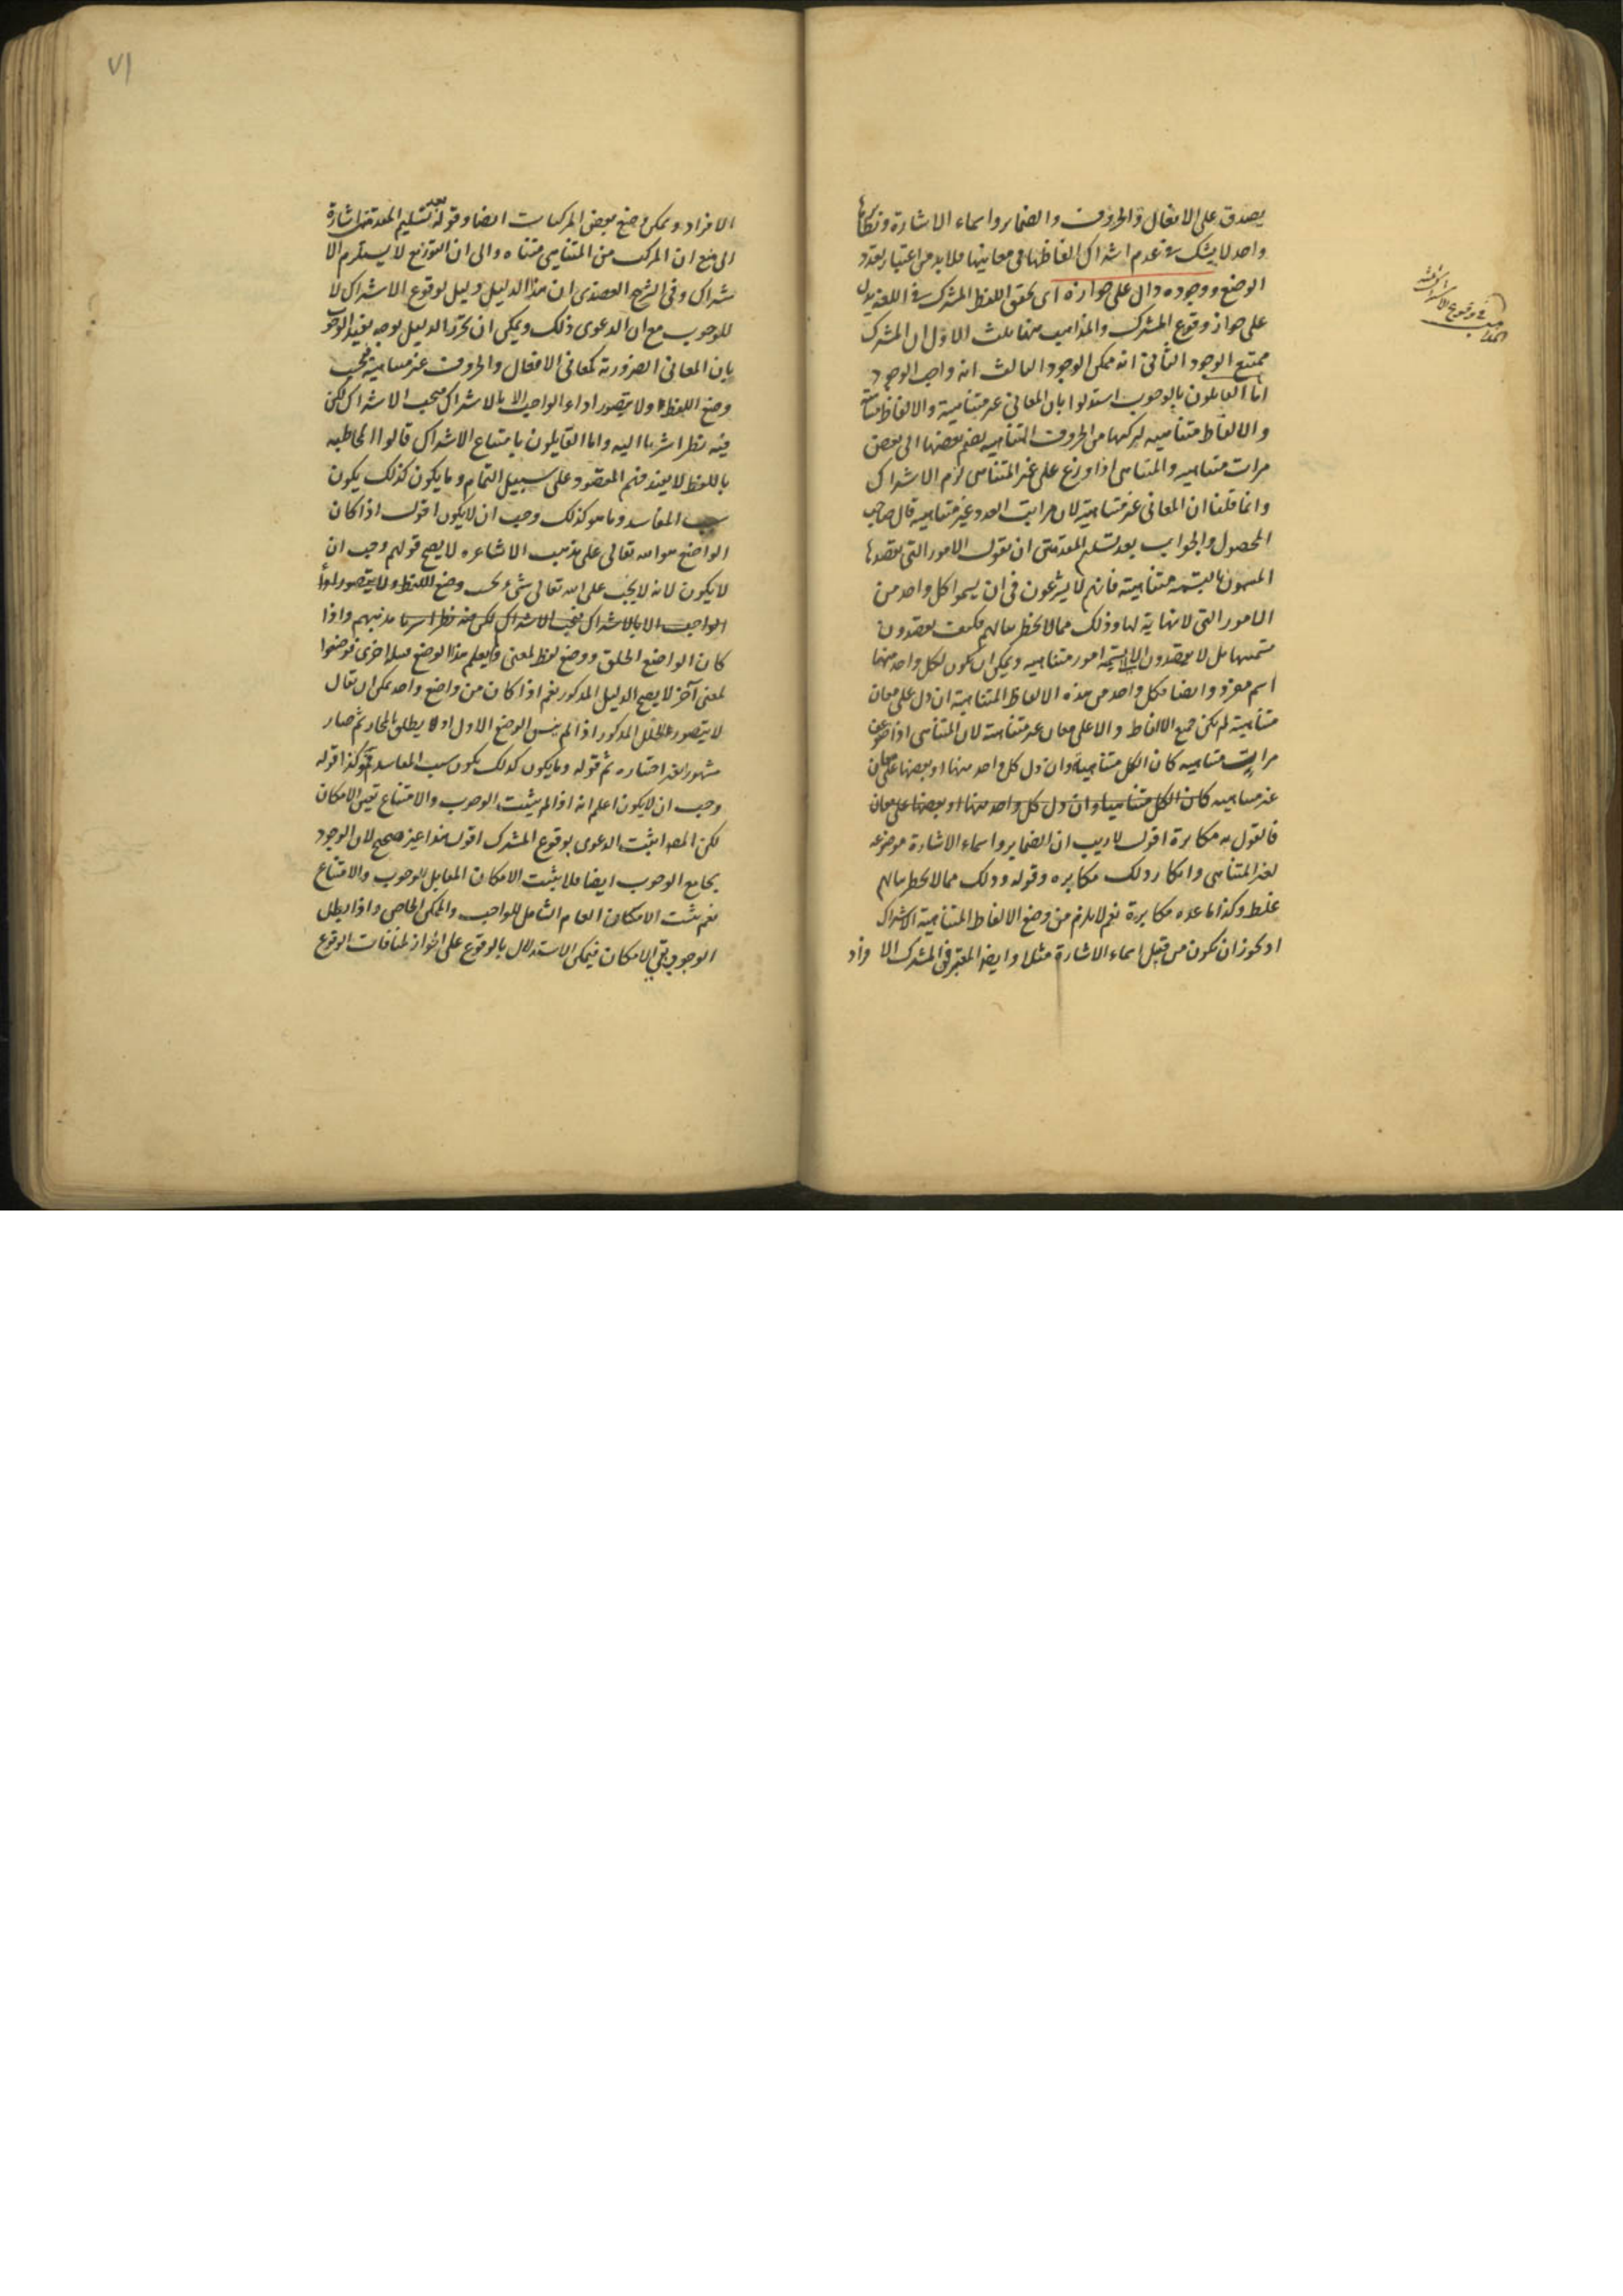 يصدق على الافعال والحروف والضماير واسماء الاشارة
واحد لا يشك فى عدم اشتراك الفاظها فى معانيها فلا بد من اعتبار تعدد
الوضع ووجوده دال على جوازه اى تحقق اللفظ المشترك فى اللغة يدل
على جواز وقوع المشترك والمذاهب ههنا ثلث الاول ان المشترك
ممتنع الوجود الثانى انه ممكن الوجود الثالث انه واجب الوجود
اما القايلون بالوجوب استدلوا بان المعانى غير متناهية والالفاظ متناهية
والالفاظ متناهيه لتركبها من الحروف المتناهيه بضم بعضها الى بعض
مرات متناهيه والمتناهى اذا وزع على غير المتناهى لزم الاشتراك
وانما قلنا ان المعانى غير متناهية لان مراتب العدد غير متناهيه قال صاحب
المحصول والجواب بعد تسليم المقدمتين ان نقول الامور التى يقصدها
المسمون بالتسمية متناهية فانهم لا يشرعون فى ان يسموا كل واحد من
الامور التى لا نهاية لها وذلك مما لا يخطر ببالهم فكيف يقصدون
تسميتها بل لا يقصدون الا تسمية امور متناهيه ويمكن ان يكون لكل واحد منها
اسم مفرد وايضا فكل واحد من هذه الالفاظ المتناهية ان دل على معان
متناهية لم يكن جميع الالفاظ دالا على معان غير متناهية لان المتناهى اذا ضوعف
مرات متناهيه كان الكل متناهية وان دل كل واحد منها او بعضها على معان
غير متناهيه كان الكل متناهيا وان دل كل واحد منها او بعضها على معان
فالقول به مكابرة اقول لا ريب ان الضماير واسماء الاشارة موضوعه
لغير المتناهى وانكار ذلك مكابره وقوله وذلك مما لا يخطر ببالهم
غلط وكذا ما عده مكابرة نعم لا يلزم من وضع الالفاظ المتناهية الاشتراك
اذ يجوز ان تكون من قبيل اسماء الاشارة مثلا وايضا المعتبر فى المشترك الا فراد
المذاهب فى وقوع الاشتراك ثلثة
٧١
الافراد ويمكن وضع بعض المركبات ايضا وقوله بعد تسليم المقدمتين اشارة
الى منع ان المركب من المتناهى متناه والى ان التوزيع لا يستلزم الا
شتراك وفى الشرح العضدى ان هذا الدليل دليل لوقوع الاشتراك لا
للوجوب مع ان الدعوى ذلك ويمكن ان يحرر الدليل بوجه يفيد الوجوب
بان المعانى الضرورية كمعانى الافعال والحروف غير متناهية فيجب
وضع اللفظ لها ولا يتصور اداء الواجب الا بالاشتراك فيجب الاشتراك لكن
فيه نظر اشرنا اليه واما القايلون بامتناع الاشتراك قالوا المخاطبه
باللفظ لا يفيد فهم المقصود على سبيل التمام وما يكون كذلك يكون
سبب المفاسد وما هو كذلك وجب ان لا يكون اقول اذا كان
الواضع هو الله تعالى على مذهب الاشاعره لا يصح قولهم وجب ان
لا يكون لانه لا يجب على الله تعالى شئ وضع اللفظ ولا يتصور اداء
الواجب الا بالاشتراك فيجب الاشتراك لكن فيه نظر اشرنا مذهبهم واذا
كان الواضع الخلق ووضع لفظ لمعنى ولم يعلم هذا الوضع قبيلة اخرى فوضعوا
لمعنى آخر لا يصح الدليل المذكور نعم اذا كان من واضع واحد يمكن ان يقال
لا يتصور الخلل المذكور اذا لم ينس الوضع الاول او لا يطلق بالمجاز ثم صار
مشهورا بغير اختياره ثم قوله وما يكون كذلك يكون سبب المفاسد ممنوع وكذا قوله
وجب ان لا يكون اعلم انه اذا لم يثبت الوجوب والامتناع تعين الامكان
لكن المصـ اثبت الدعوى بوقوع المشترك اقول هذا غير صحيح لان الوجود
يجامع الوجوب ايضا فلا يثبت الامكان المقابل للوجوب والامتناع
نعم يثبت الامكان العام الشامل للواجب والممكن الخاص واذا بطل
الوجوب بقى الامكان فيمكن الاستدلال بالوقوع على الجواز لمنافات الوقوع